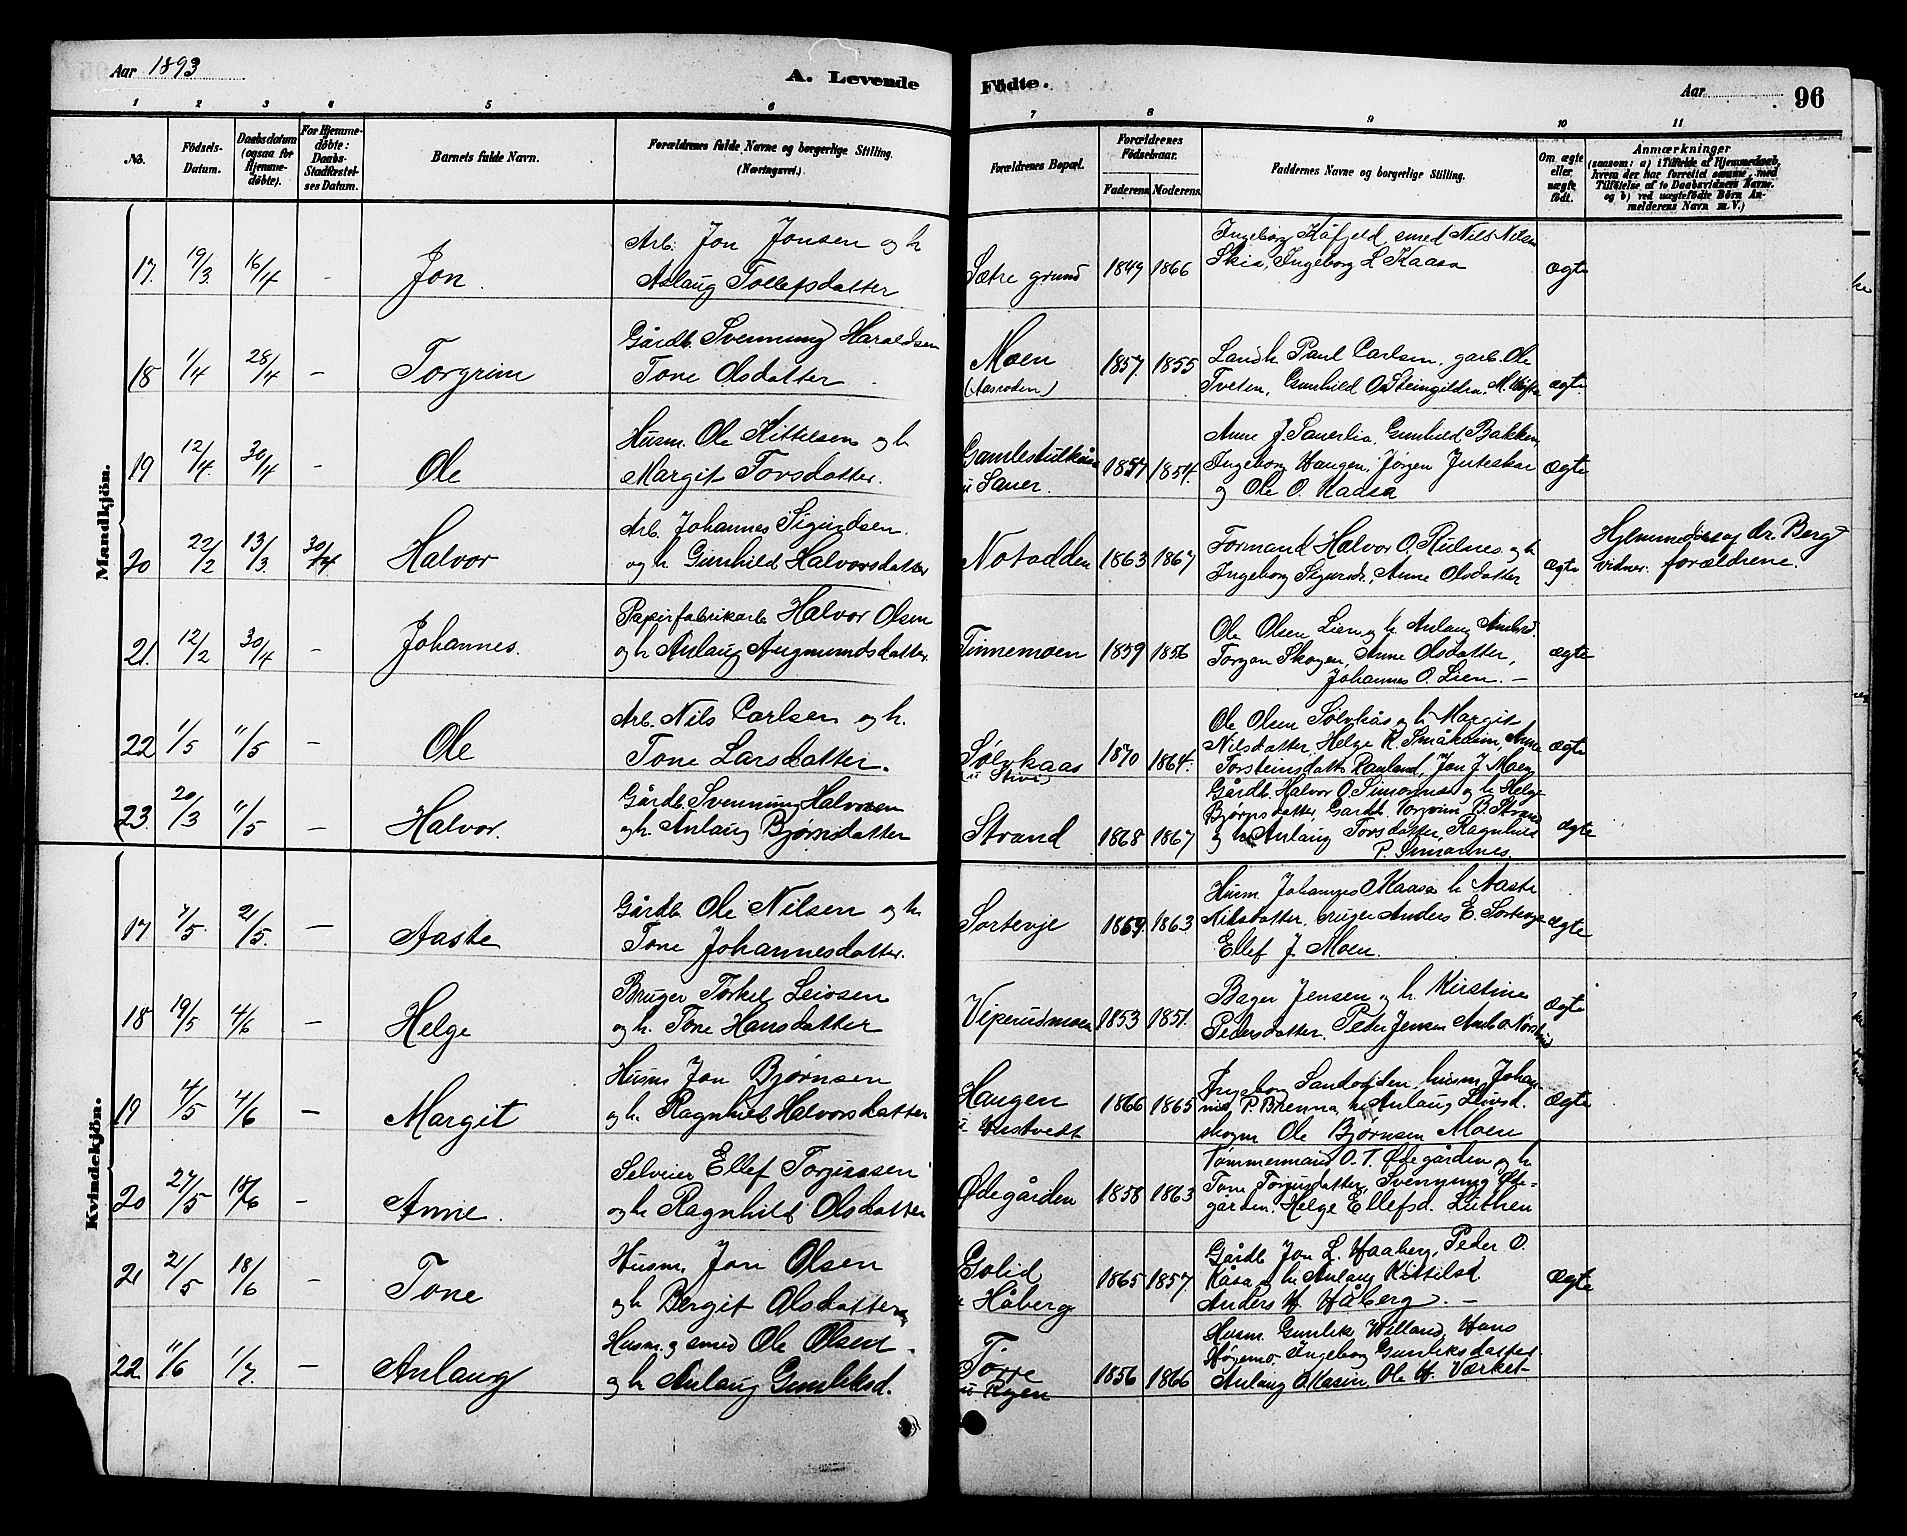 Aar 1893
A. Levende
Fødte.
Aar
96
1 2 3 4 5 6 7 8 9 10 11
No. Fødsels-Datum. Daabsdatum (ogsaa for Hjemme-døbte). For Hjemme-døbte: Daabs-Stadfæstel-ses Datum. Barnets fulde Navn. Forældrenes fulde Navne og borgerlige Stilling. (Næringsvei.) Forældrenes Bopæl. Forældrenes Fødselsaar. Faderens. Moderens. Faddernes Navne og borgerlige Stilling. Om ægte eller uægte født.
Anmærkninger
(saasom: a) i Tilfælde af Hjemmedaab,
hvem der har forrettet samme, med
Tilføielse af to Daabsvidners Navne.
og b) ved uægtefødte Børn An-
melderens Navn m. V.)
Mandkjön.
17. 19/3 16/4 - Jon.
Arb. Jon Jonsen og h
Aslaug Tollefsdatter
Sætre grund 1849 1866
Ingeborg Kåfjeld, smed Nils Nilsen
Skia, Ingeborg L Kaasa
ægte
18 1/4 28/4 - Torgrim
Gårdb. Svennung Haraldsen
Tone Olsdatter
Moen
1857 1855
Landh. Paul Carlsen, garb. Ole
Tveten, Gunhild O.
ægte
19 12/4 30/4 - Ole
Husm. Ole Kittelsen og h
Margit Torsdatter.
u Sauer. 1857 1854.
Anne J. Sauerlia, Gunhild Bakken
Ingeborg Haugen, Jørgen Juteskar
og Ole O. Kaasa
ægte
20 22/2 13/3 30/4 Halvor
Arb. Johannes Sigurdsen
og h. Gunhild Halvorsdatter
Notodden 1863 1867
Formand Halvor O. Rulnes og h
Ingeborg Sigursdr, Anne Olsdatter
ægte
Hjemmedøbt af dr. Berg
vidner. forældrene.
21. 12/2 30/4 - Johannes.
Papirfabrikarb Halvor Olsen
og h Anlaug Augmundsdatter
Tinnemoen 1859 1856
Ole Olsen Lien og h Anlaug
Torgon Skogen, Anne Olsdatter,
Johannes O. Lien. -
ægte
22 1/5 11/5 - Ole
Arb. Nils Carlsen og h.
Tone Larsdatter.
Sølvkaas
1870 1864.
Ole Olsen Sølvkås og h Margit
Nilsdatter, Helge R. Småkåsin, Anne
Torsteinsdatt. Rauland, Jon J. Moen
ægte
23. 20/3 11/5 - Halvor.
Gårdb. Svennung Halvorsen
og h. Anlaug Bjørnsdatter
Strand 1868 1867
Gårdb. Halvor O. Simonnes og h Helge
Bjørnsdatter, Gardb. Torgrim B. Strand
og h. Anlaug Torsdatter, Ragnhild
P. Simonnes.
ægte
Kvindekjön.
17 7/5 21/5. - Aaste
Gårdb Ole Nilsen og h.
Tone Johannesdatter.
Sortevje 1869 1863
Husm. Johannes O Kaasa h. Aaste
Nilsdatter, bruger Anders E. Sortevje
Ellef J. Moen.
ægte
18 19/5 4/6 - Helge
Bruger Torkel Leivsen
og h. Tone Hansdatter
Viperudmoen 1853 1851.
Bager Jensen og h. Kirstine
Pedersdatter. Peder Jensen
ægte
19 4/5 4/6 - Margit
Husm Jon Bjørnsen
og h. Ragnhild Halvorsdatter
Haugen
1866 1865
Ingeborg Sandodden, husm. Johan-
nes P. Brenna, h. Anlaug Leivsd.
Ole Bjørnsen Moen
ægte
20 27/5 18/6 - Anne.
Selveier Ellef Torjussen
og h Ragnhild Olsdatter
Ødegården 1858 1863
Tømmermand O. T. Ødegården og h
Tone Torjusdatter, Svennung Øde-
gården. Helge Ellefsd. Luthen
21 21/5 18/6 - Tone
Husm. Jon Olsen
og h. Bergit Olsdatter
Golid
u Håberg 1865 1857
Gårdb. Jon L. Haaberg, Peder O.
Kåsa og h. Anlaug Kittilsd
Anders H. Håberg. -
ægte
22. 11/6 1/7. - Anlaug
Husm. og smed Ole Olsen
og h Anlaug Gunleiksd.
Torre
u Ryen 1856 1866
Husm. Gunleik Willand, Hans
Høgemo. Ingeborg Gunleiksdatter
Anlaug O. Ole H. Værket